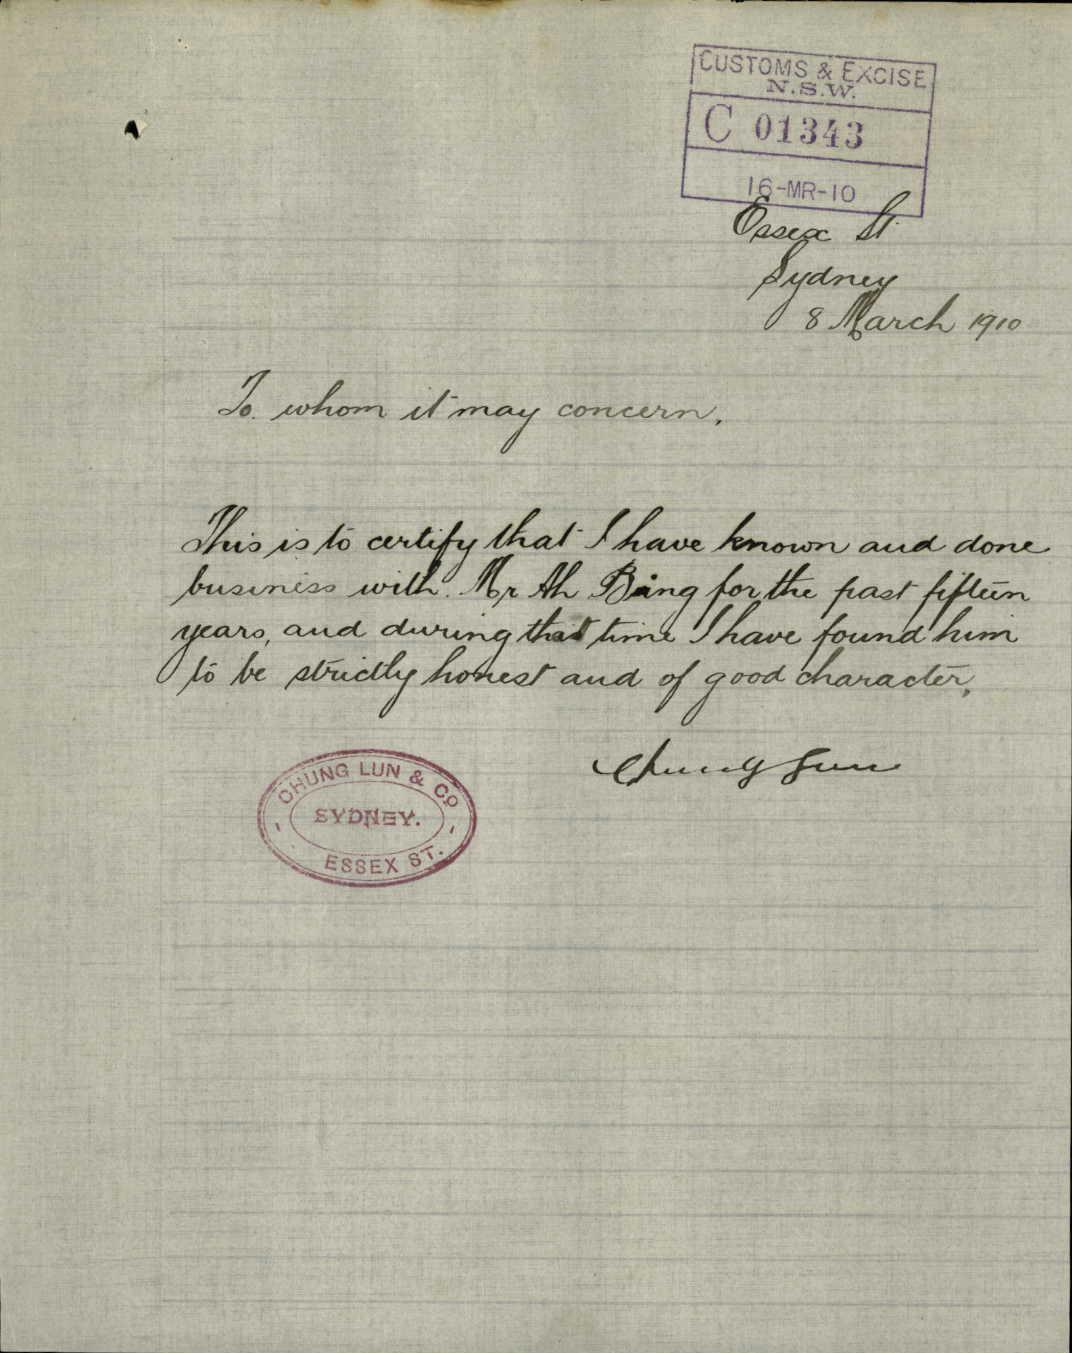 CUSTOMS & EXCISE
N.S.W.
C 01343
16-MR-10
Essex St.
Sydney
8 March 1910
To whom it may concern,
This is to certify that I have known and done
business with Mr Ah Bing for the past fifteen
years, and during that time I have found him
to be strictly honest and of good character,
Chung Lun
CHUNG LUN & Co
SYDNEY.
ESSEX ST.